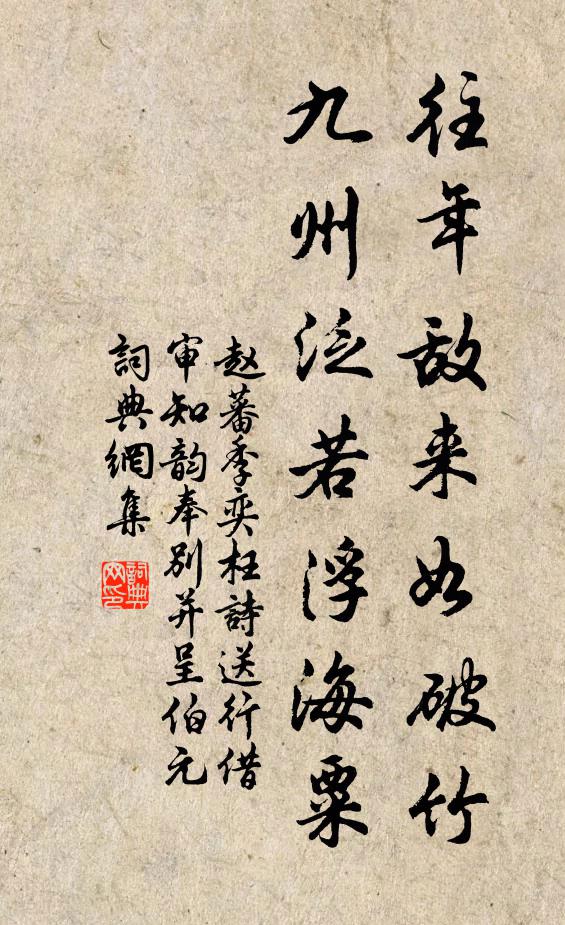 往年敌来如破竹
九州泛若浮海粟
赵蕃季奕枉詩送行借
审知韵奉别并呈伯元
詞典網集
詞典網印